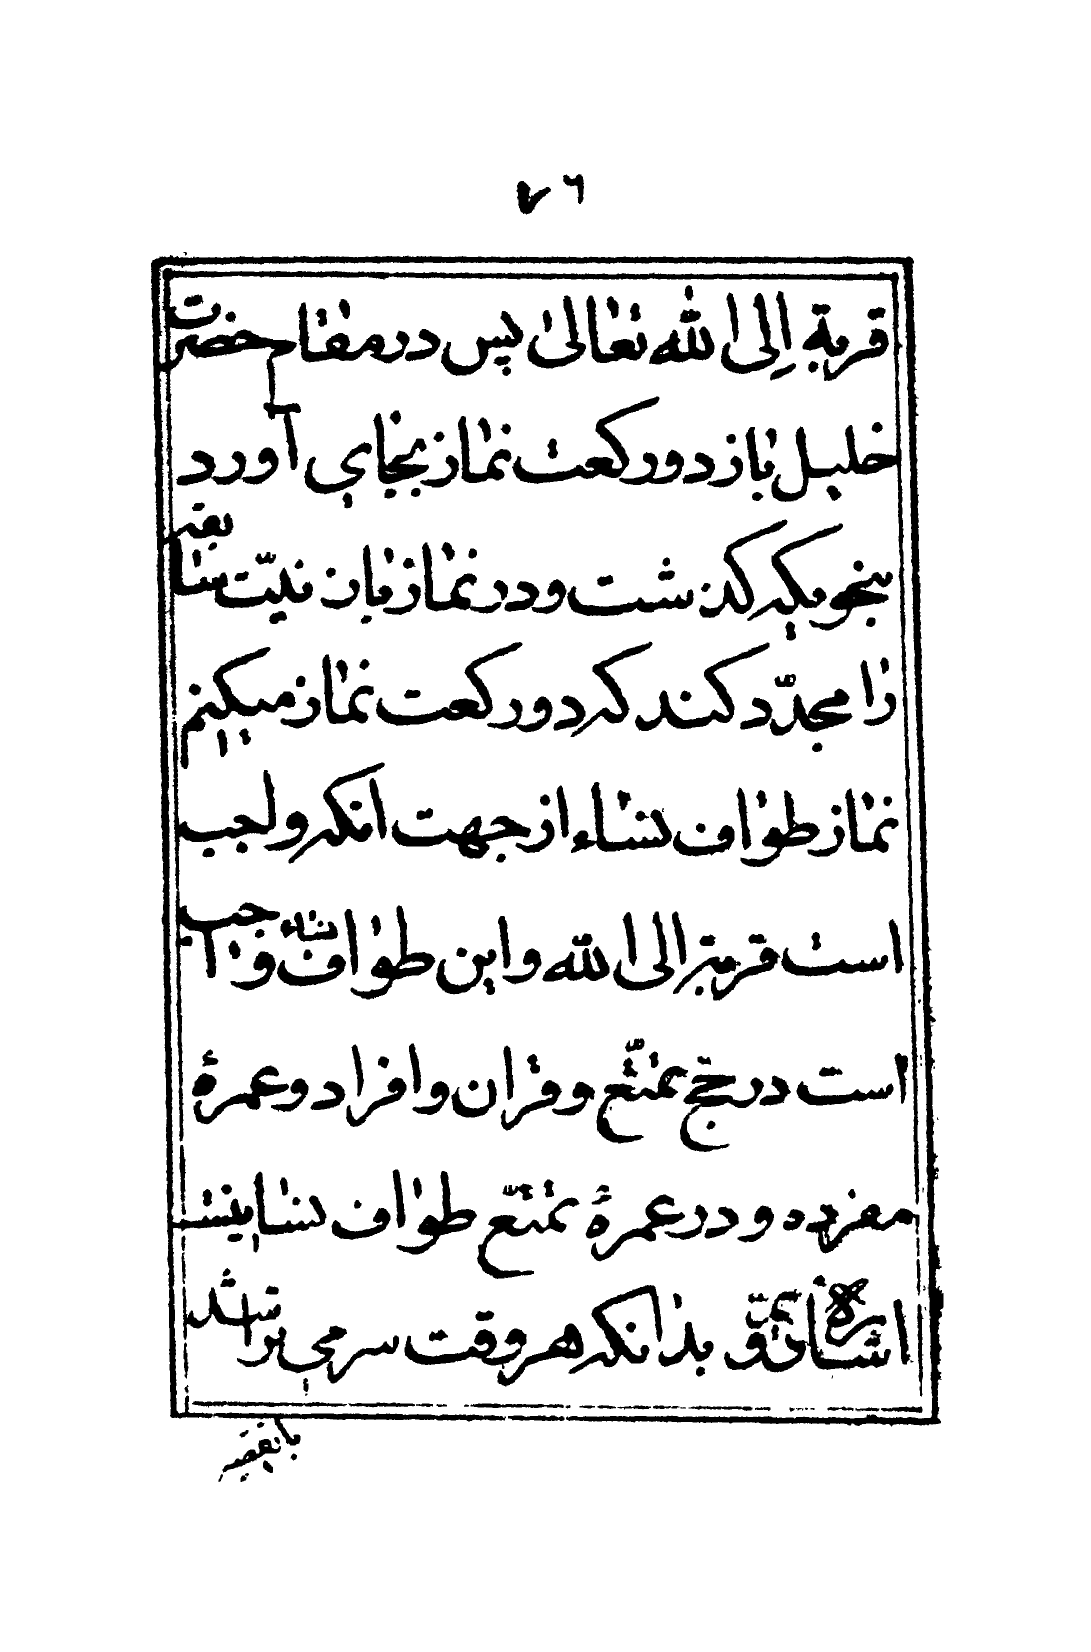 ٧٦
قربة إلى الله تعالى پس در مقام حضرت
خليل باز دو ركعت نماز بجاى آورد
بنحويكه كذشت و در نماز باز نيّت سابقه
را مجدّد كند كه دو ركعت نماز ميكنم
نماز طواف نساء از جهت انكه واجب
است قربة الى الله و اين طواف نساء واجب
است در حج تمتّع و قران و افراد و عمرهٔ
مفرده و در عمرهٔ تمتّع طواف نسا نيست
اشاق و بدانكه هر وقت سر مى تراشد
يا تقصير